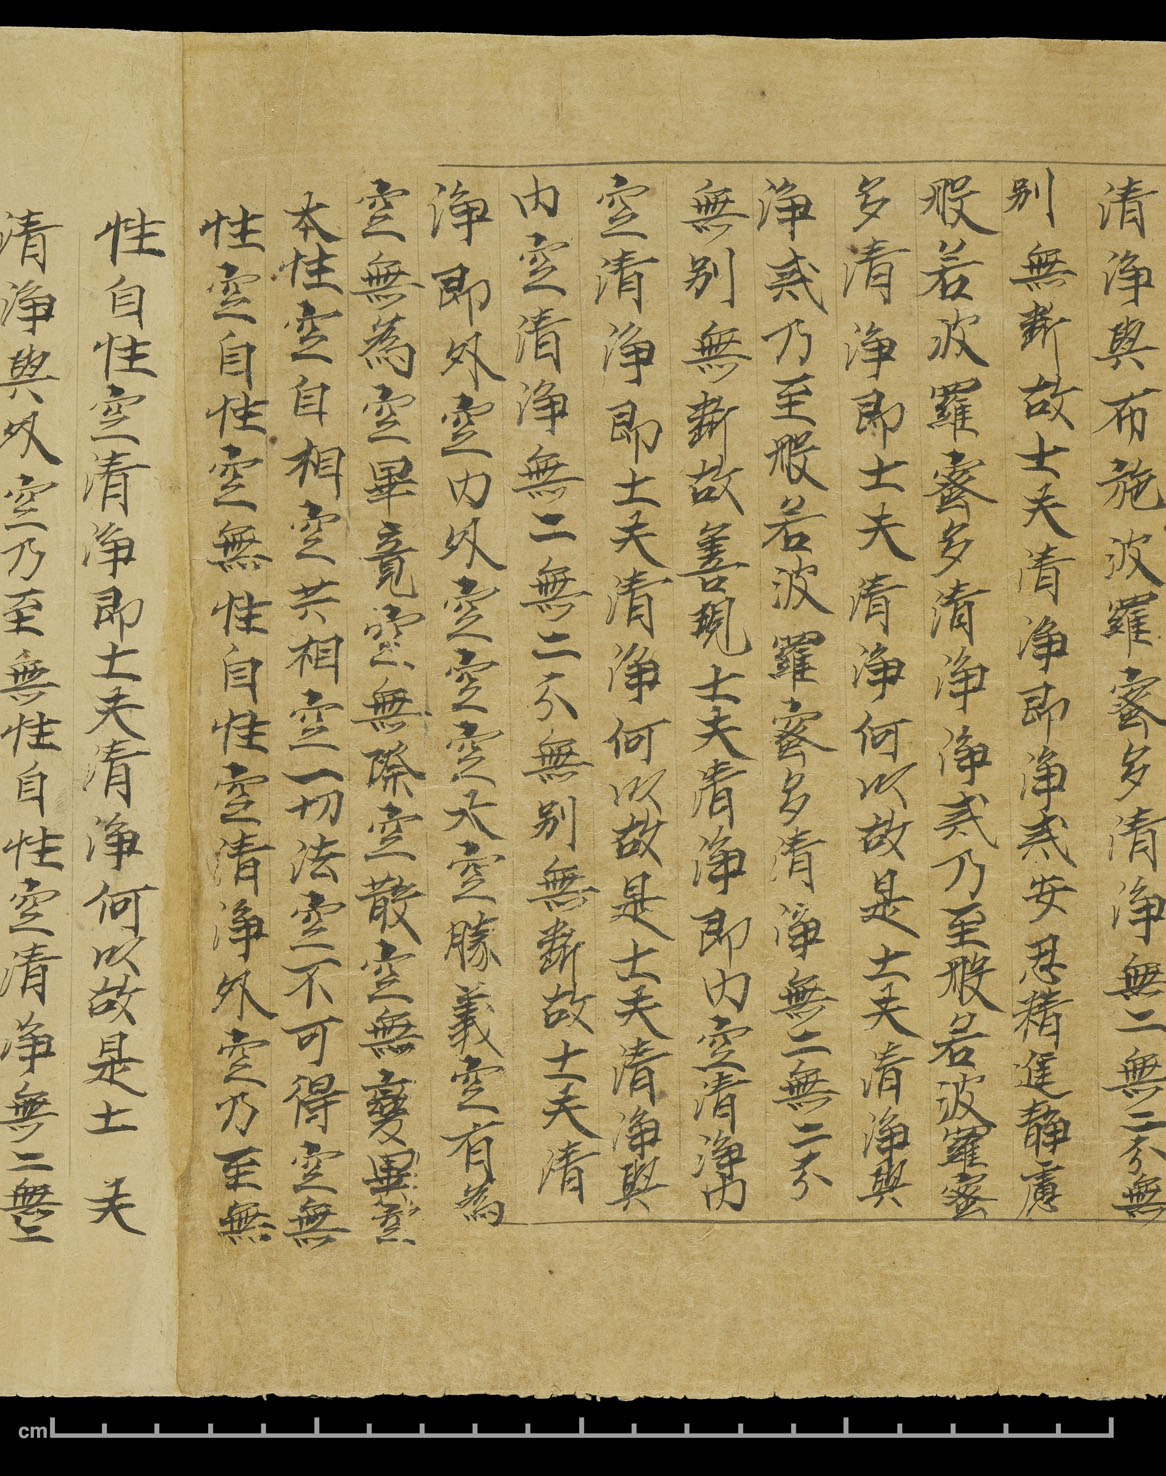 清淨與布施波羅蜜多清淨無二無二分無
別無斷故士夫清淨即淨戒安忍精進靜慮
般若波羅蜜多清淨淨戒乃至般若波羅蜜
多清淨即士夫清淨何以故是士夫清淨與
淨戒乃至般若波羅蜜多清淨無二無二分
無別無斷故善現士夫清淨即內空清淨內
空清淨即士夫清淨何以故是士夫清淨與
內空清淨無二無二分無別無斷故士夫清
淨即外空內外空空空大空勝義空有為
空無為空畢竟空無際空散空無變異空
本性空自相空共相空一切法空不可得空無
性空自性空無性自性空清淨外空乃至無
性自性空清淨即士夫清淨何以故是士夫
清淨與外空乃至無性自性空清淨無二無二
cm